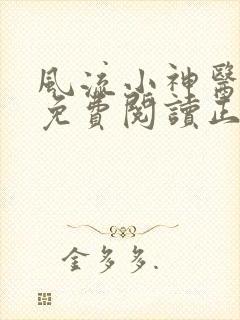 風流小神醫
免費閱讀正
金多多.